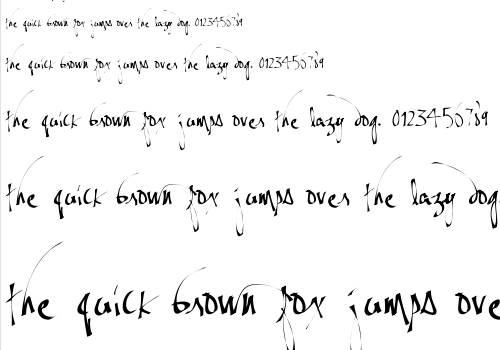 the quick brown fox jumps over the lazy dog. 0123456789
the quick brown fox jumps over the lazy dog. 0123456789
the quick brown fox jumps over the lazy dog. 0123456789
the quick brown fox jumps over the lazy dog
the quick brown fox jumps ove